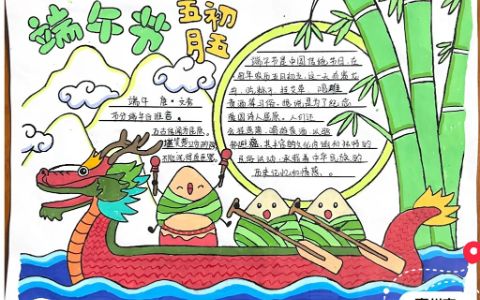 端午节
五月初五
端午 唐·文秀
节分端午自谁言
万古传闻为屈原
堪笑楚江空渺渺
不能洗得直臣冤
端午节是中国传统节日,在
每年农历五月初五,这一天常常
喝雄
黄酒等习俗,据说是为了纪念
爱国诗人屈原,人们还
会挂菖蒲
的文化内涵和独特的
承载着中华民族的
历史记忆和情感。